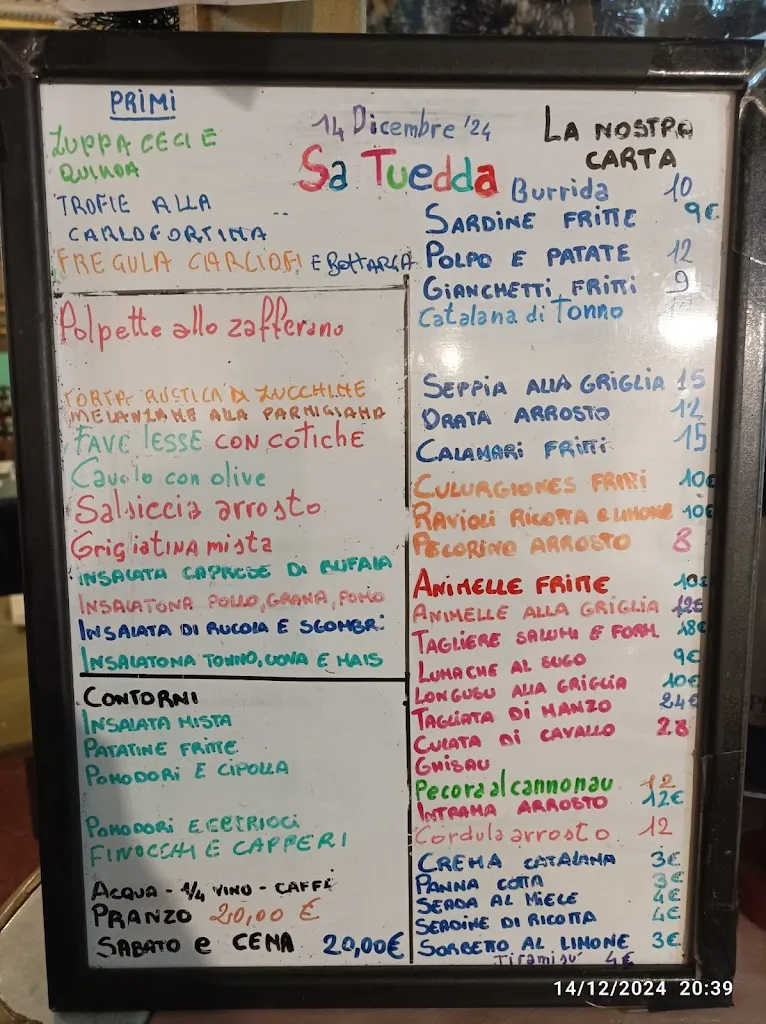 PRIMI
ZUPPA CECI E
QUINOA
TROFIE ALLA
CARLOFORTINA
FREGULA CIARCIOFI E BOTTARGA
14 Dicembre '24
Sa Tuedda
Polpette allo zafferano
TORTA RUSTICA DI ZUCCHINE
MELANZANE ALLA PARMIGIANA
FAVE LESSE CON COTICHE
Cavolo con olive
Salsiccia arrosto
Grigliatina mista
INSALATA CAPRESE DI BUFALA
INSALATONA POLLO, GRANA, POMO
INSALATA DI RUCOLA E SGOMBRI
INSALATONA TONNO, UOVA E MAIS
CONTORNI
INSALATA MISTA
PATATINE FRITTE
POMODORI E CIPOLLA
POMODORI E
FINOCCHI E CAPPERI
ACQUA - 1/4 VINO - CAFFÈ
PRANZO 20,00 €
SABATO e CENA 20,00€
LA NOSTRA
CARTA
Burrida 10
SARDINE FRITTE 9€
POLPO E PATATE 12
GIANCHETTI FRITTI 9
Catalana di Tonno
SEPPIA ALLA GRIGLIA 15
ORATA ARROSTO 12
CALAMARI FRITTI 15
CULURGIONES FRITTI 10€
RAVIOLI RICOTTA E LIMONE 10€
PECORINO ARROSTO 8
ANIMELLE FRITTE 10€
ANIMELLE ALLA GRIGLIA 12€
TAGLIERE SALUMI E FORM. 18€
LUMACHE AL SUGO 9€
LONGUSU ALLA GRIGLIA 10€
TAGLIATA DI MANZO 24€
CULATA DI CAVALLO 28
GHISAU
Pecora al cannonau 12
INTRAMA ARROSTO 12€
Cordula arrosto 12
CREMA CATALANA 3€
PANNA COTTA 3€
SEADA AL MIELE 4€
SEADINE DI RICOTTA 4€
SORBETTO AL LIMONE 3€
Tiramisu' 4€
14/12/2024 20:39